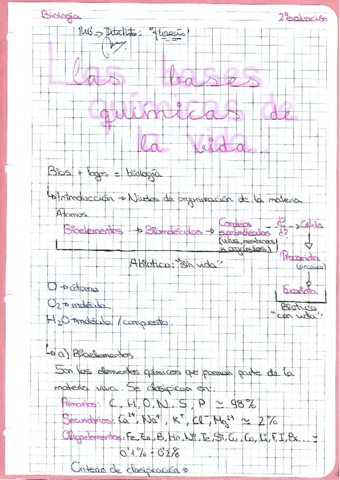 Biología 2ª Evaluación
Las bases
químicas de
la vida.
Bios + logos = biología
Introducción → Niveles de organización de la materia
Átomos
Bioelementos → Biomoléculas → Complejos → Célula
supramoleculares
(virus, membranas
y orgánulos)
Procariota
Abiótica: "sin vida"
Eucariota
Biótica
"con vida"
O → átomo
O2 → molécula
H2O → molécula / compuesto.
a) Bioelementos
Son los elementos químicos que forman parte de la
materia viva. Se clasifican en:
Primarios: C, H, O, N, S, P ≃ 98%
Secundarios: Ca2+, Na+, K+, Cl-, Mg2+ ≃ 2%
Oligoelementos: Fe, Zn, B, Mn, Ni, Te, Si, Cu, Co, Li, F, I, Br... ≃
0'1% - 0'2%
Criterio de clasificación →